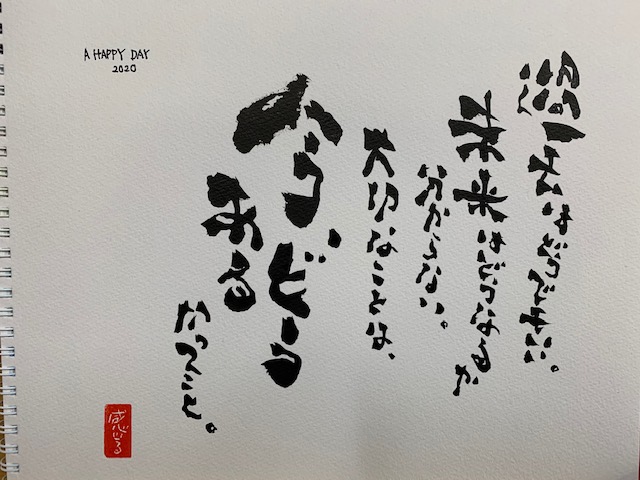 A HAPPY DAY
2020
過去はどうでもいい。
未来はどうなるか
分からない。
大切なことは、
どう
在る
かってこと。
感じる